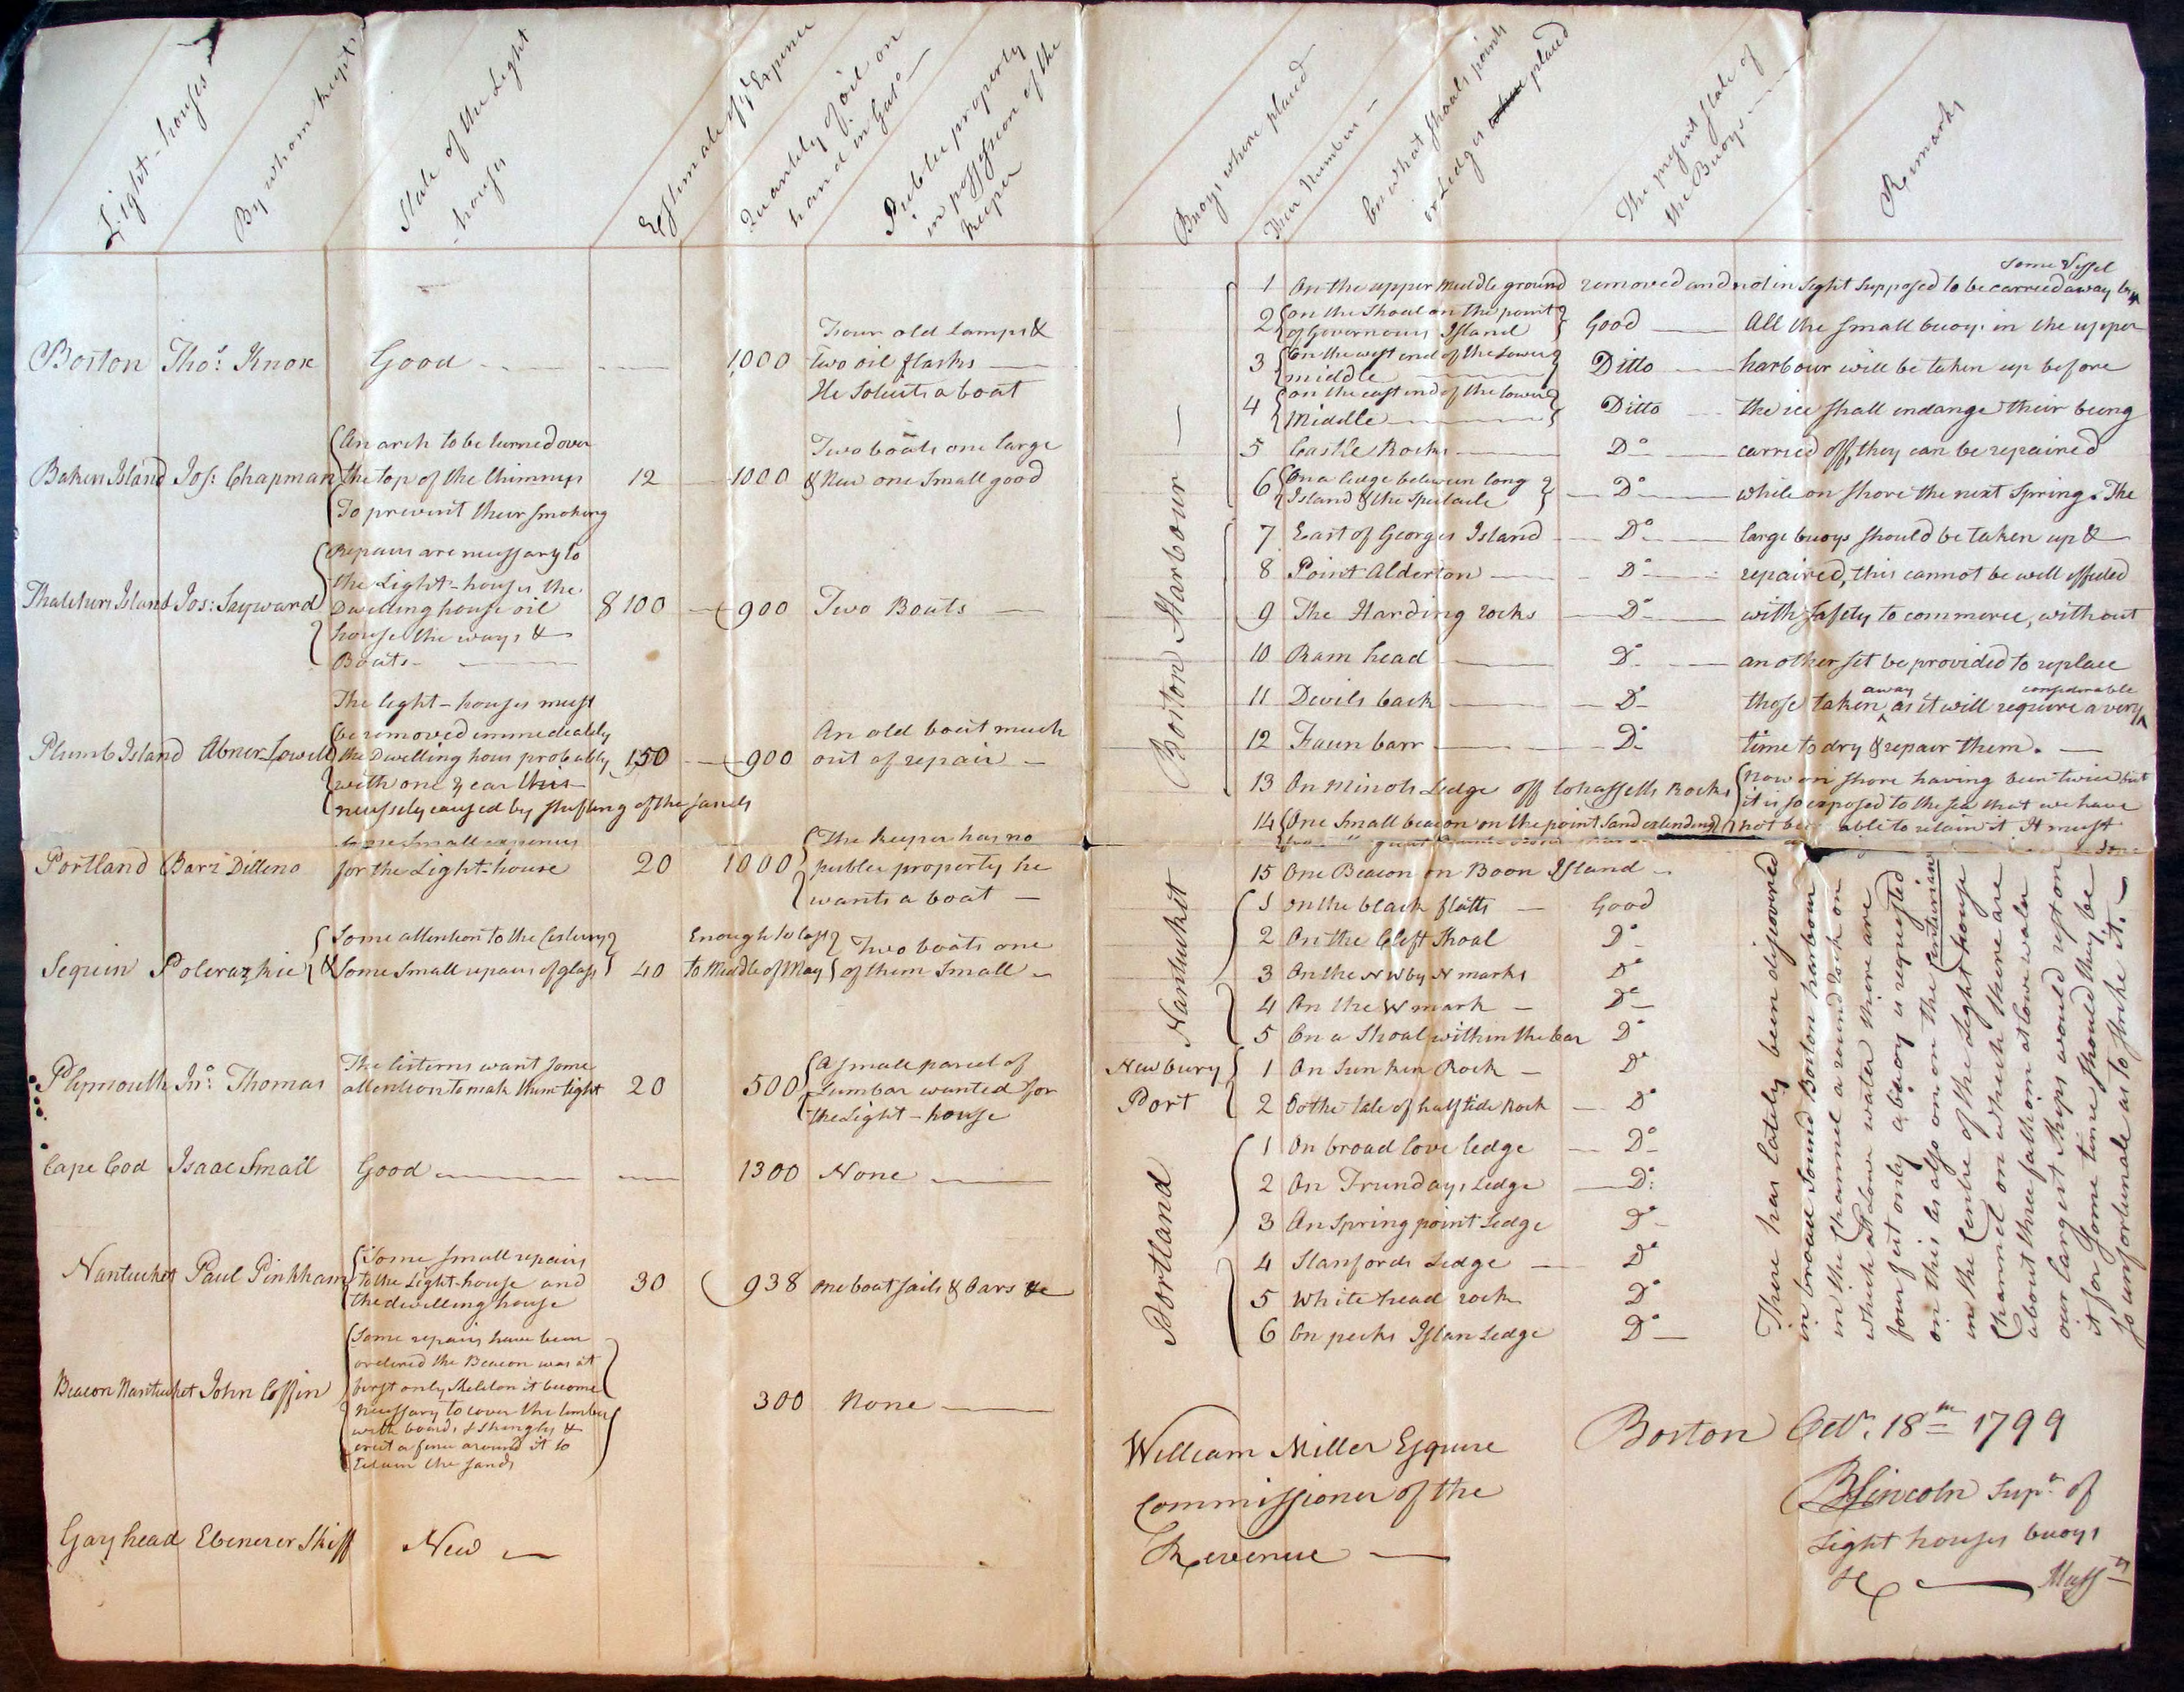 Light-houses
By whom kept
State of the Light
-houses
Estimate of ye Expence
Quantity of oil on
hand in Gals
Public property
in possession of the
keeper
Boston Thos. Knox Good 1000 Four old lamps &
two oil flasks
He Solicits a boat
Bakers Island Jos: Chapman An arch to be turned over
the top of the Chimneys 12 1000 Two boats one large
To prevent their smoking & New one small good
Thatchers Island Jos: Sayward Repairs are necessary to
the Light-houses the
Dwelling house oil 8100 900 Two Boats
house the ways &
Boats
Plumb Island Abner Lowell The light-houses must
be removed immediately
the Dwelling hous probably 150 900 An old boat much
with one year this out of repair
necessety caused by shifting of the sands
Portland Barz Dilleno some small expences
for the Light-house 20 1000 The keeper has no
public property he
wants a boat
Seguin Polerazkie Some attention to the Cestern
& Some small repairs of glass 40 Enough to last
to Middle of May Two boats one
of them small
Plymouth Jno. Thomas The cisterns want some
attention to make them tight 20 500 A small parcel of
Lumbar wanted for
the Light-house
Cape Cod Isaac Small Good 1300 None
Nantucket Paul Pinkham Some small repairs
to the Light-house and
the dwelling house 30 938 one boat sails & Oars &c
Beacon Nantucket John Coffin Some repairs have been
ordered the Beacon was at
first only Skeleton it become
necessary to cover the timber 300 None
with boards & shingles &
erect a fence around it to
retain the sands
Gay head Ebenezer Skiff New
Buoys where placed
Their Numbers
On what shoals points
or Ledges where placed
The present State of
the Buoys
Remarks
Boston Harbour
1 On the upper middle ground removed and not in sight supposed to be carried away by some Vessel
2 on the Shoal on the point
of Governours Island Good All the small buoys in the upper
3 On the west end of the Lower
middle Ditto harbour will be taken up before
4 on the east end of the lower
Middle Ditto the ice shall endange their being
5 Castle Rocks Do carried off, they can be repaired
6 On a ledge between long
Island & the Spectacle Do while on shore the next Spring. The
7 East of Georges Island Do large buoys should be taken up &
8 Point Alderton Do repaired, this cannot be well effected
9 The Harding rocks Do with safety to commerce, without
10 Ram head Do another set be provided to replace
11 Devils back Do those taken away as it will require a very considerable
12 Faun barr Do time to dry & repair them.
13 On Minots Ledge off Cohassetts Rocks now on shore having been twice but
it is so exposed to the sea that we have
14 One Small beacon on the point Sand extending not been able to retain it It must
15 One Beacon on Boon Island
Nantucket
1 on the black flatts Good
2 On the Cleft Shoal Do
3 On the NW by N marks Do
4 On the W mark Do
5 On a Shoal within the bar Do
Newbury
Port
1 On Sunken Rock Do
2 On the tale of half tide Rock Do
Portland
1 On broad Cove ledge Do
2 On Trundays Ledge Do
3 On Spring point Ledge Do
4 Stanfords Ledge Do
5 White head rock Do
6 On peeks Islan Ledge Do
There has lately been discovered
in broad Sound Boston harbour
in the Channel a round rock on
which at low water there are
four feet only a buoy is requested
on this as also on on the Centurian
in the Centre of the Light house
Channel on which there are
about three fathom at low water
our largest ships would rest on
it for some time should they be
so unfortunate as to strike it.
William Miller Esquire
Commissioner of the
Revenue
Boston Octr. 18th 1799
BLincoln Supr. of
Light houses buoys
&c Massts